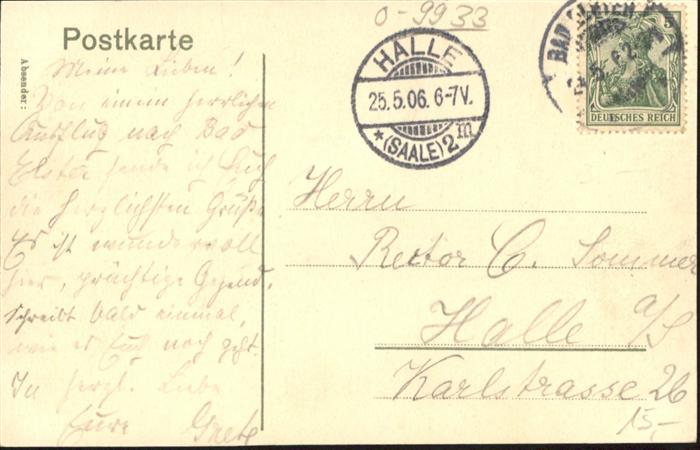 o-9933
Postkarte
Absender:
HALLE
25.5.06. 6-7V.
*(SAALE)2m
BAD ELSTER
5
DEUTSCHES REICH
Meine Lieben!
Von einem herrlichen
Ausflug nach Bad
Elster sende ich Euch
die herzlichsten Grüße.
Es ist wundervoll
hier, prächtige Gegend.
Schreibt bald einmal,
wie es Euch noch geht.
In herzl. Liebe
Eure Grete
Herrn
Rektor C. Sommer
Halle a/S
Karlstrasse 26
15,-